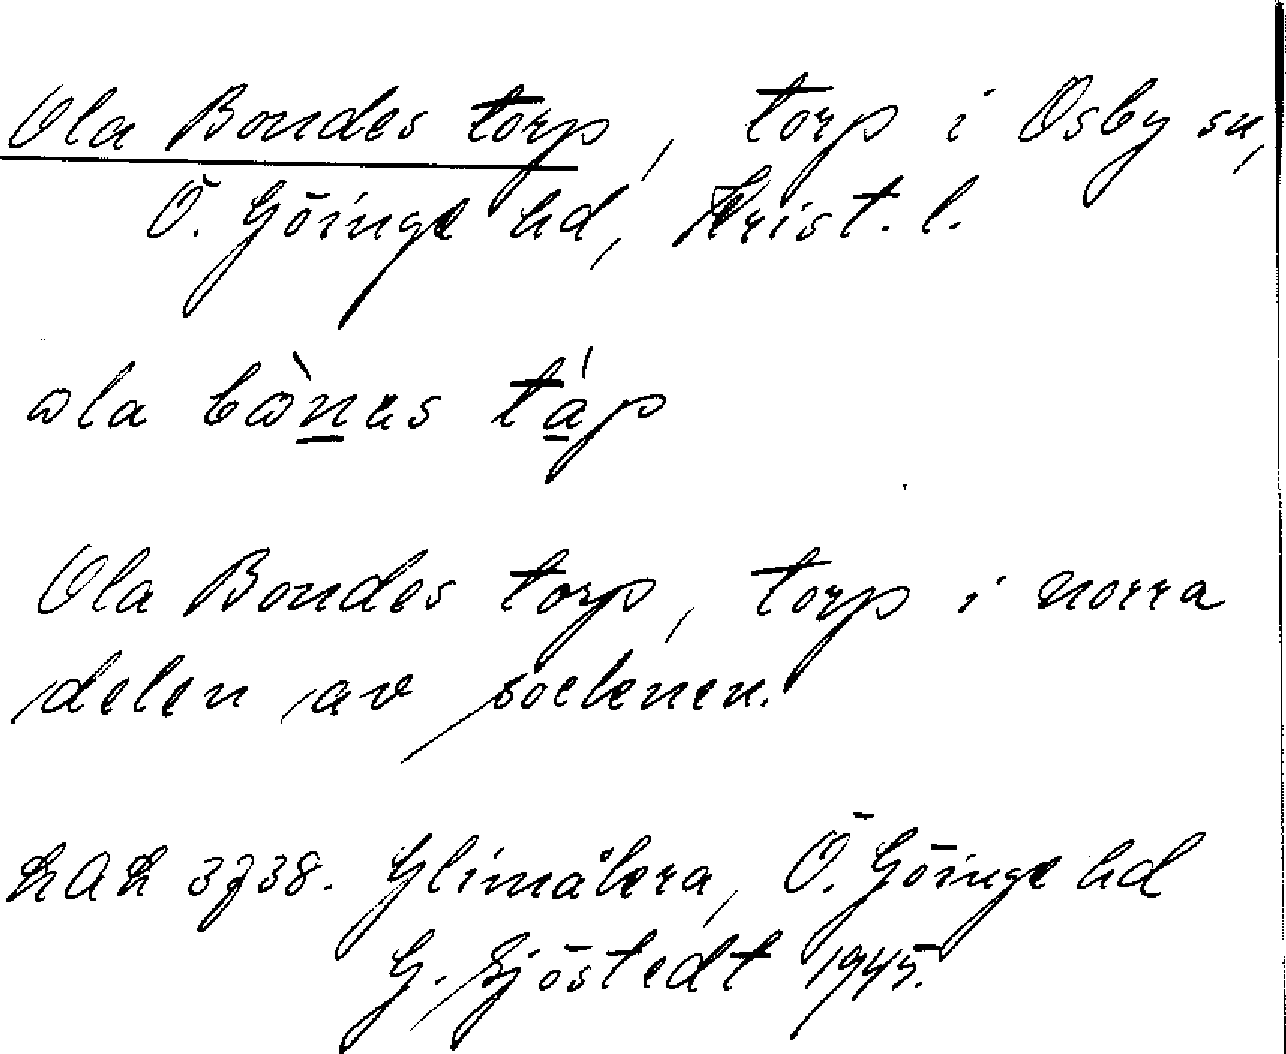 Ola Bondes torp, torp i Osby sn,
Ö. Göinge hd, Krist. l.
ωla bὼn̲as tá̲p
Ola Bondes torp, torp i norra
delen av socknen.
LAL 3738. Glimåkra, Ö. Göinge hd
G. Sjöstedt 1945.